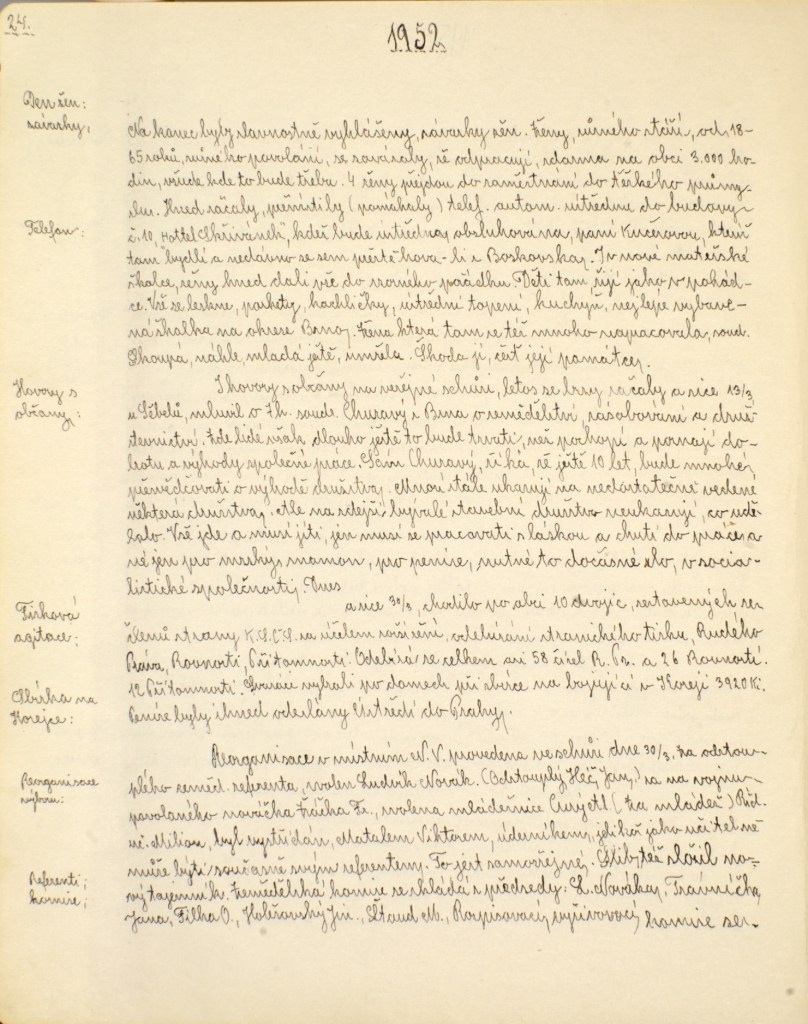 24.
1952
Den žen:
závazky,
Na konec byly slavnostně vyhlášeny, závazky žen. Ženy, různého stáří, od 18-
65 roků, různého povolání, se zavázaly, že odpracují, zdarma na obci 3.000 ho-
din, všude kde to bude třeba. 4 ženy přejdou do zaměstnání do těžkého průmy-
slu. Hned začaly, přečistily (pomáhaly) telef. autom. ústřednu do budovy
Telefon:
č. 10, Hottel Skřivánek", kdež bude ústředna, obsluhována, paní Kučerovou, která
tam bydlí a nedávno se sem přistěhova-li z Boskovska. I v nové mateřské
školce, ženy hned dali vše do vzorného pořádku. Děti tam, žijí jako v pohád-
ce. Vše se leskne, parkety, kachličky, ústřední topení, kuchyň, nejlépe vybave-
ná školka na okrese Brno. Žena která tam se též mnoho napracovala, soud.
Skoupá, náhle, mladá ještě, umřela. Škoda jí, čest její památce.
Hovory s
občany:
I hovory s občany na veřejné schůzi, letos se brzy začaly a sice 13/3
u Sébelů, mluvil o 7h. soudr. Churavý z Brna o zemědělství, zásobování a druž-
stevnictví. Zde lidé však dlouho ještě to bude trvati, než pochopí a poznají do-
brotu a výhody společné práce. Sám Churavý, říká, že ještě 10 let, bude mnohé
přesvědčovati o výhodě družstva. Mnozí stále ukazují na nedostatečně vedené
některá družstva. Ale na zdejší bývalé stavební družstvo neukazují, co udě-
lalo. Vše jde a musí jíti, jen musí se pracovati s láskou a chutí do práce, a
né jen pro mrský mamon, pro peníze, nutné to dočasné zlo, v socia-
listické společnosti. Dnes
Tisková
agitace:
a sice 30/3, chodilo po obci 10 dvojic, sestavených ze
členů strany K.S.Č.S. za účelem rozšíření, odebírání stranického tisku, Rudého
Práva, Rovnosti, Přítomnosti. Odebírá se celkem asi 58 čísel R. Pr. a 26 Rovností.
12 Přítomností.
Sbírka na
Korejce:
Soudruzi vybrali po domech při sbírce na bojující v Koreji 3920 Kč.
Peníze byly ihned odeslány Ústředí do Prahy.
Reorganisace
výboru:
Reorganisace v místním N.V. provedena ve schůzi dne 30/3, za odstou-
plého zeměd. referenta, zvolen Ludvík Novák. (Odstouplý Kléč Jan,) za na vojnu
povolaného nováčka Fr., zvolena mládežnice (za mládež) Říd.
uč. Milion, byl vystřídán, Matalem Viktorem, úderníkem, jelikož jako učitel ne-
může býti současně svým referentem. To jest samozřejmé. Slib, též složil no-
vý tajemník.
Referenti;
komise;
Zemědělská komise se skládá z předsedy: L. Nováka, Trávníčka
Jana, Filka O., Holešovský Jin., Štaud M., Rozpisovací, vyživovací, komise ses-